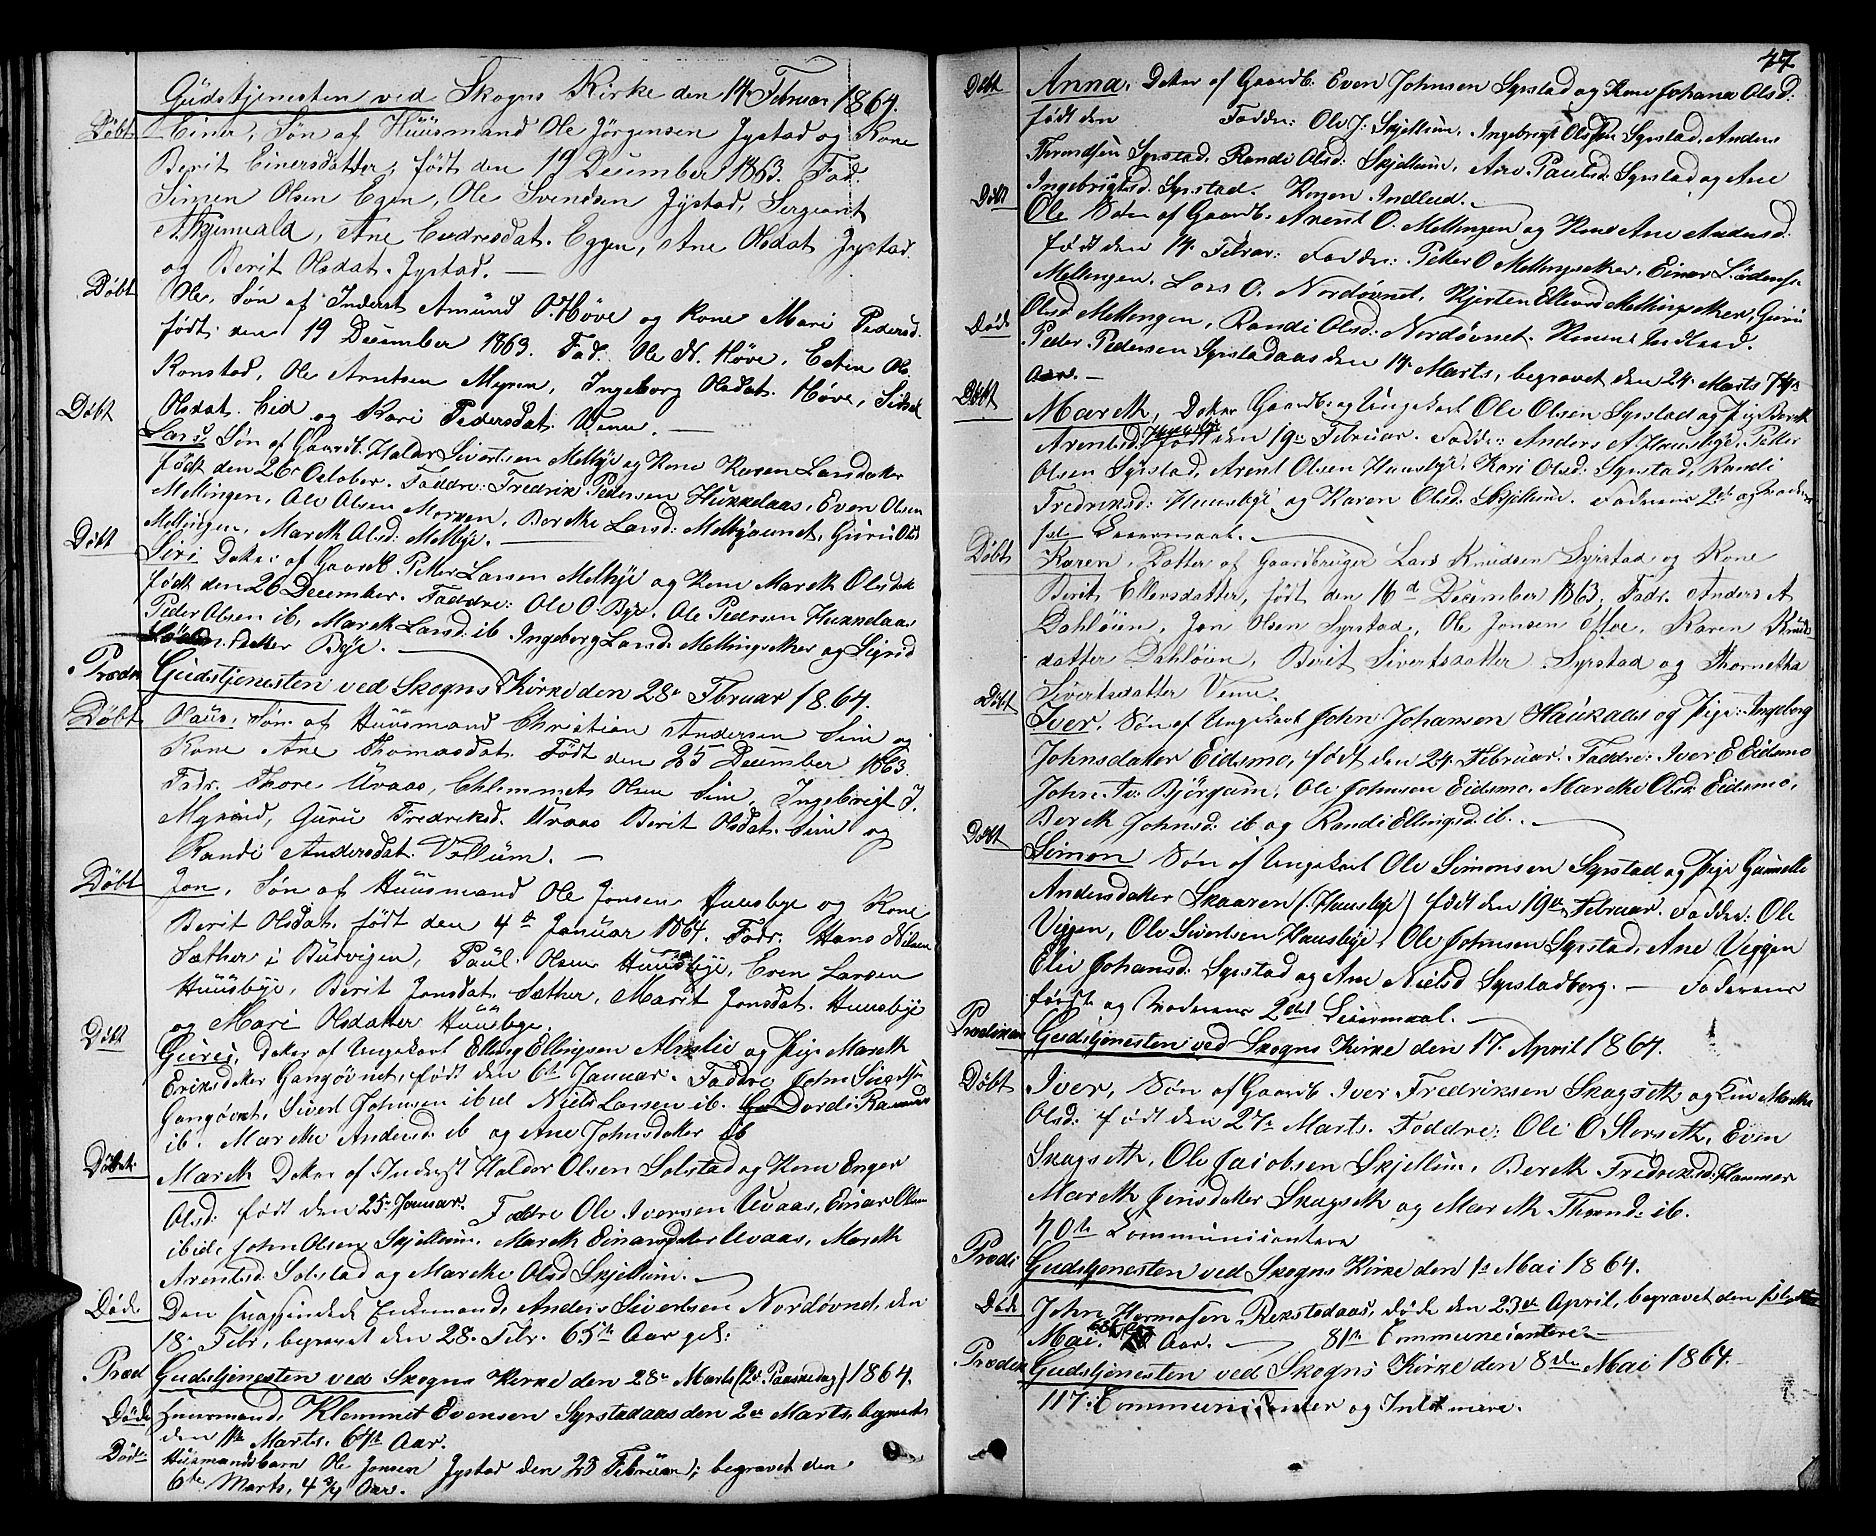 Gudstjenesten ved Skogns Kirke den 14 Februar 1864.
Døbt Einer, Søn af Huusmand Ole Jørgensen Jystad og Kone
Berit Einersdatter, født den 19 December 1863. Fad:
Simen Olsen Egen, Ole Svendsen Jystad, Sergeant
Ane Endresdat. Eggen, Ane Olsdat Jystad
og Berit Olsdat. Jystad. —
Døbt Ole, Søn af Inderst Amund O. Høve og Kone Mari Pedersd.
født den 19 December 1863. Fad. Ole N. Høve, Esten Ols.
Ronstad, Ole Arntsen Myren, Ingeborg Olsdat. Høve, Sidsel
Olsdat. Eid og Kari Pedersdat. Venn. —
Døbt Lars, Søn af Gaardb. Haldor Sivertsen Melbye og Kone Karen Larsdatter
født den 26 October. Faddre: Fredrik Pedersen Hukkelaas, Even Olsen
Mellingen, Ole Olsen Morken, Berethe Larsd: Melbyaunet, Guru Olsd
Mellingen, Mareth Olsd: Melbye. —
Døbt Siri Dotter af Gaardb. Petter Larsen Melbye og Kone Mareth Olsdat
født den 26 December. Faddre: Ole O. Bye, Ole Pedersen Hukkelaas
Peder Olsen ib, Mareth Larsd: ib Ingeborg Larsd. Mellingsether og Sigrid
Bye. —
Præd Gudstjenesten ved Skogns Kirke den 28 Februar 1864.
Døbt Claus, Søn af Huusmand Christian Andersen Sim og
Kone Ane Thomasdat. Født den 25 December 1863.
Fadr. Thore Uvaas, Chlemmet Olsen Sim, Ingebrigt J.
Guru Fredriksd. Uvaas Berit Olsdat. Sim og
Randi Andersdat. Vollum. —
Døbt Jon, Søn af Huusmand Ole Jonsen Huusbye og Kone
Berit Olsdat. født den 4de Januar 1864. Fadr. Hans Nilsen
Sæther i Budvigen, Paul Olsen Huusbye, Even Larsen
Huusbye, Berit Jonsdat. Sæther, Marit Jonsdat. Huusbye
og Mari Olsdatter Huusbye.
Døbt Datter af Ungekarl Elling Ellingsen Almlie og Pige Mareth
Eriksdatter Gangøvnet, født den 6te Januar. Faddre John Sivertsen
Gangøvnet, Sivert Johnsen ibid Niels Larsen ib. Dordi Rasmusd
ib. Marethe Andersd ib og Ane Johnsdatter ib
Døbt Mareth Datter af Inderst Haldor Olsen Solstad og Kone Enger
Olsd: født den 25 Januar. Faddre Ole Iversen Uvaas, Einar Olsen
ibid, John Olsen Skjellum, Mareth Einarsdatter Uvaas, Mareth
Arentsd. Solstad og Marethe Olsd Skjellum. —
Døde Den Enkemand, Anders Sivertsen Nordøvnet, den
18 Febr, begravet den 28. Febr. 65 Aar gl:
Præd Gudstjenesten ved Skogns Kirke den 28 Marts (2 Paaskedag) 1864.
Døde Huusmand, Klemmet Evensen Syrstadaas den 2 Marts, begravet
den Marts. 67 Aar.
Døde Huusmandsbarn Ole Jonsen Jystad den 28 Februar; begravet den
6te Marts, 4 3/4 Aar.
47
Døbt Anna, Dotter af Gaardb. Even Johnsen Syrstad og Kone Johana Olsd:
født den Faddre: Ole J: Skjellum, Ingebrigt Olsen Syrstad, Anders
Throndsen Syrstad, Randi Olsd: Skjellum, Ane Paulsd: Syrstad og Ane
Ingebrigtsd. Syrstad. Konen Indled. —
Døbt Ole Søn af Gaardb. Arent O. Mellingen og Kone Ane Andersd.
født den 14 Febrar: Faddre: Petter O Mellingsether, Einar
Mellingen, Lars O. Nordøvnet, Kjersten Mellingsether, Guru
Olsd Mellingen, Randi Olsd: Nordøvnet. Konens Indled.
Døde Peder Pedersen Syrstadaas den 14 Marts, begravet den 24 Marts 74
Aar. —
Døbt Mareth, Dotter Gaardb. og Ungekarl Ole Olsen Syrstad og Pige Bereth
Arentsd. Huusbye født den 19 Februar. Faddre: Anders A Huusbye, Peder
Olsen Syrstad, Arent Olsen Huusbye, Kari Olsd: Syrstad, Randi
Fredriksd: Huusbye og Karen Olsd: Skjellum. Faderens 2det og Moderens
1ste Leiermaal. —
Døbt Karen, Datter af Gaardbruger Lars Knudsen Syrstad og Kone
Berit Ellevsdatter, født den 16d December 1863. Fadr. Anders A
Dahløien, Jon Olsen Syrstad, Ole Jonsen Moe, Karen Knuds-
datter Dahløien, Berit Sivertsdatter Syrstad og Thornetha
Sivertsdatter Venn.
Døbt Iver, Søn af Ungekarl John Johansen Haukaas og Pige Ingeborg
Johnsdatter Eidsmo, født den 24 Februar. Faddre: Iver E Eidsmo
John A. Bjørgum, Ole Johnsen Eidsmo, Marethe Olsd: Eidsmo,
Bereth Johnsd: ib og Randi Ellingsd: ib. —
Døbt Simon Søn af Ungekarl Ole Simonsen Syrstad og Pige Gunnild
Andersdatter Skaaren (Huusbye) født den 19 Februar. Faddre: Ole
Viggen, Ole Sivertsen Huusbye, Ole Johnsen Syrstad, Ane Viggen
Elie Johansd: Syrstad og Ane Nielsd Syrstadborg. — Faderens
første og Moderens 2det Leiermaal. —
Prædiken Gudstjenesten ved Skogns Kirke den 17 April 1864.
Døbt Iver, Søn af Gaardb. Iver Fredriksen Skagseth og Kone Marethe
Olsd: født den 27 Marts. Faddre: Ole O. Storseth, Even
Skagseth, Ole Jacobsen Skjellum, Bereth Fredriksd: Hammer
Mareth Jensdatter Skagseth og Mareth Thrond: ib.
70 Communicantere
Prædi Gudstjenesten ved Skogns Kirke den 1 Mai 1864.
Døde John Hermosen Rekstadaas, døde den 23de April, begravet den 1ste
Mai. Aar. — 81 Communicantere —
Prædik Gudstjenesten ved Skogns Kirke den 8de Mai 1864.
117: Communicanter og